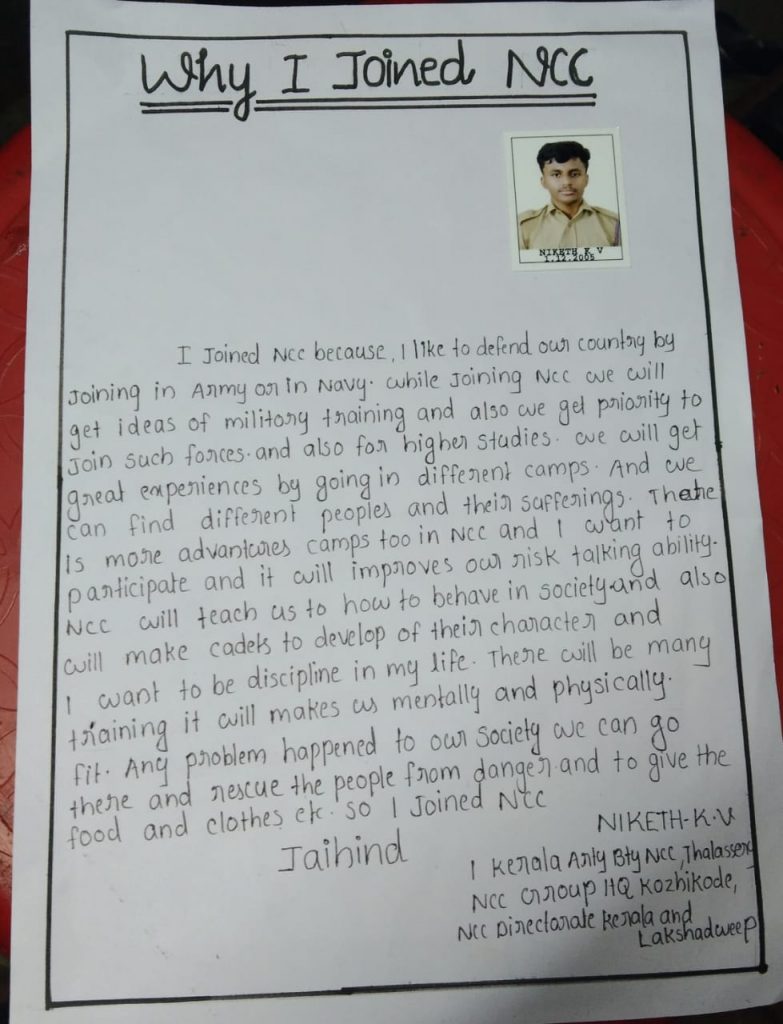 Why I Joined NCC
NIKETH K V
1.12.2005
I Joined NCC because, I like to defend our country by
Joining in Army or in Navy. While Joining NCC we will
get ideas of military training and also we get priority to
Join such forces. and also for higher studies. we will get
great experiences by going in different camps. And we
can find different peoples and their sufferings. There
is more advantures camps too in NCC and I want to
participate and it will improves our risk talking ability.
NCC will teach us to how to behave in society. and also
will make cadets to develop of their character and
I want to be discipline in my life. There will be many
training it will makes us mentally and physically.
fit. Any problem happened to our society we can go
there and rescue the people from danger. and to give the
food and clothes etc. so I Joined NCC
Jaihind
NIKETH-K.V
1 Kerala Arty Bty NCC, Thalassery
NCC Group HQ Kozhikode,
NCC Directorate Kerala and
Lakshadweep